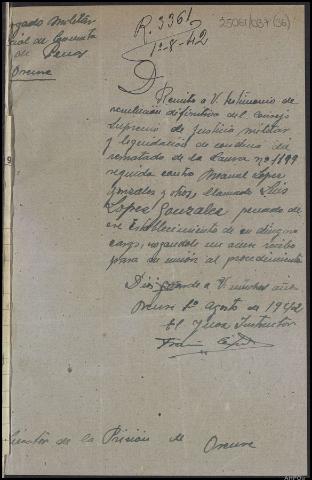 25061/037 (36)
R. 3361
1º-8-42
Juzgado Militar
de
Orense
Remito a V. testimonio de
resolución definitiva del Consejo
Supremo de Justicia Militar
y liquidación de condena del
rematado de la Causa nº 1199
seguida contra Manuel Lopez
Gonzalez y otros, llamado Luis
Lopez Gonzalez penado de
ese Establecimiento de su digno
cargo, rogandole un acuse recibo
para su unión al procedimiento
Dios guarde a V. muchos años
Orense 1º Agosto de 1942
El Juez Instructor
Director de la Prisión de Orense